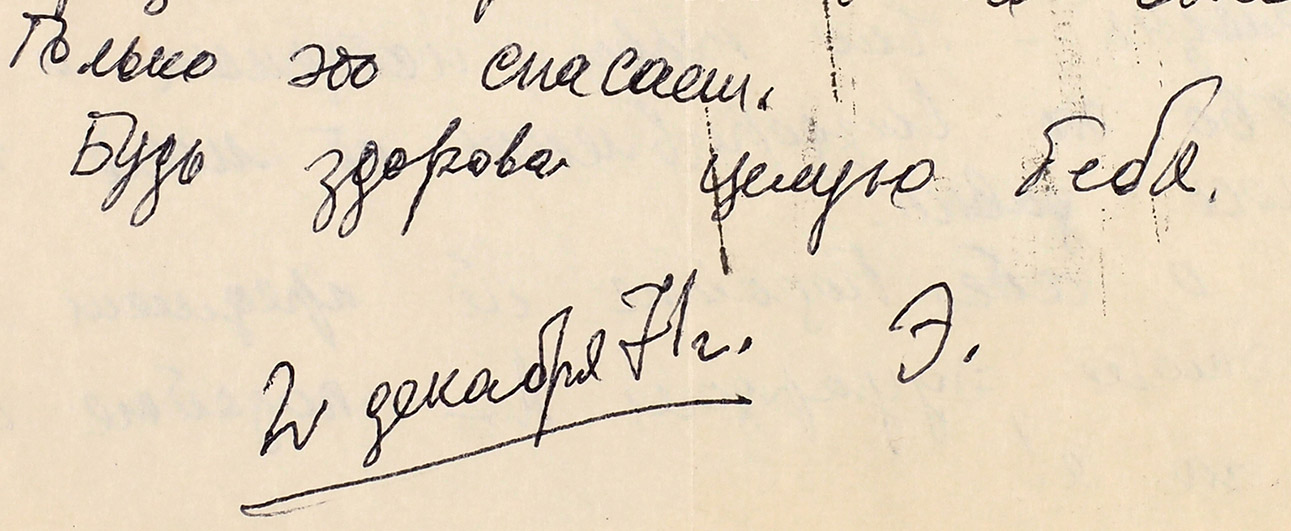 Только это спасает.
Будь здорова целую тебя.
2 декабря 71г. Э.